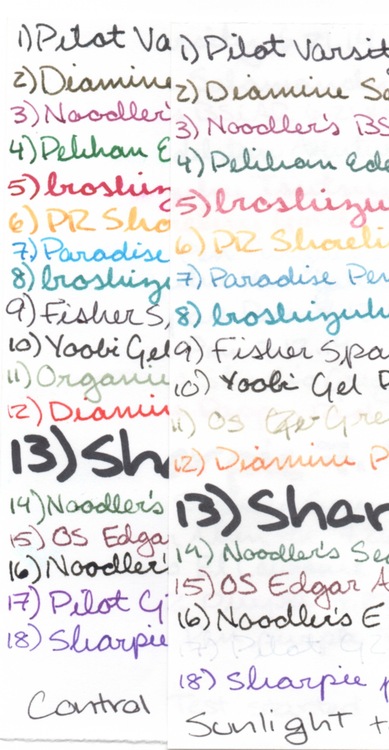 1) Pilot Va
2) Diamine
3) Noodler's
4) Pelikan E
5) Iroshizu
6) PR Sho
7) Paradise
8) Iroshizu
9) Fisher S
10) Yoobi Gel
11) Organic
12) Diamin
13) Sha
14) Noodler's
15) OS Edga
16) Noodler's
17) Pilot G
18) Sharpie
Control
1) Pilot Varsit
2) Diamine Se
3) Noodler's BS
4) Pelikan Ede
5) Iroshizu
6) PR Shoreli
7) Paradise Pen
8) Iroshizuku
9) Fisher Spa
10) Yoobi Gel
11) OS Gre
12) Diamine P
13) Shar
14) Noodler's Se
15) OS Edgar A
16) Noodler's E
17) Pilot G2
18) Sharpie p
Sunlight +